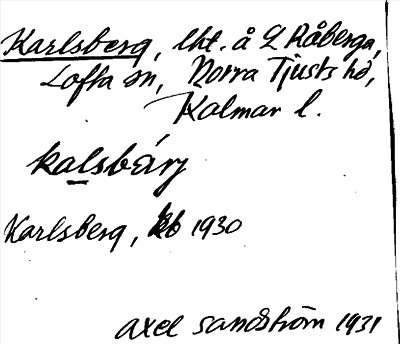 Karlsberg, lht. å L Råberga,
Lofta sn, Norra Tjusts hd,
Kalmar l.
kalsbärj
Karlsberg, kb 1930
Axel Sandström 1931